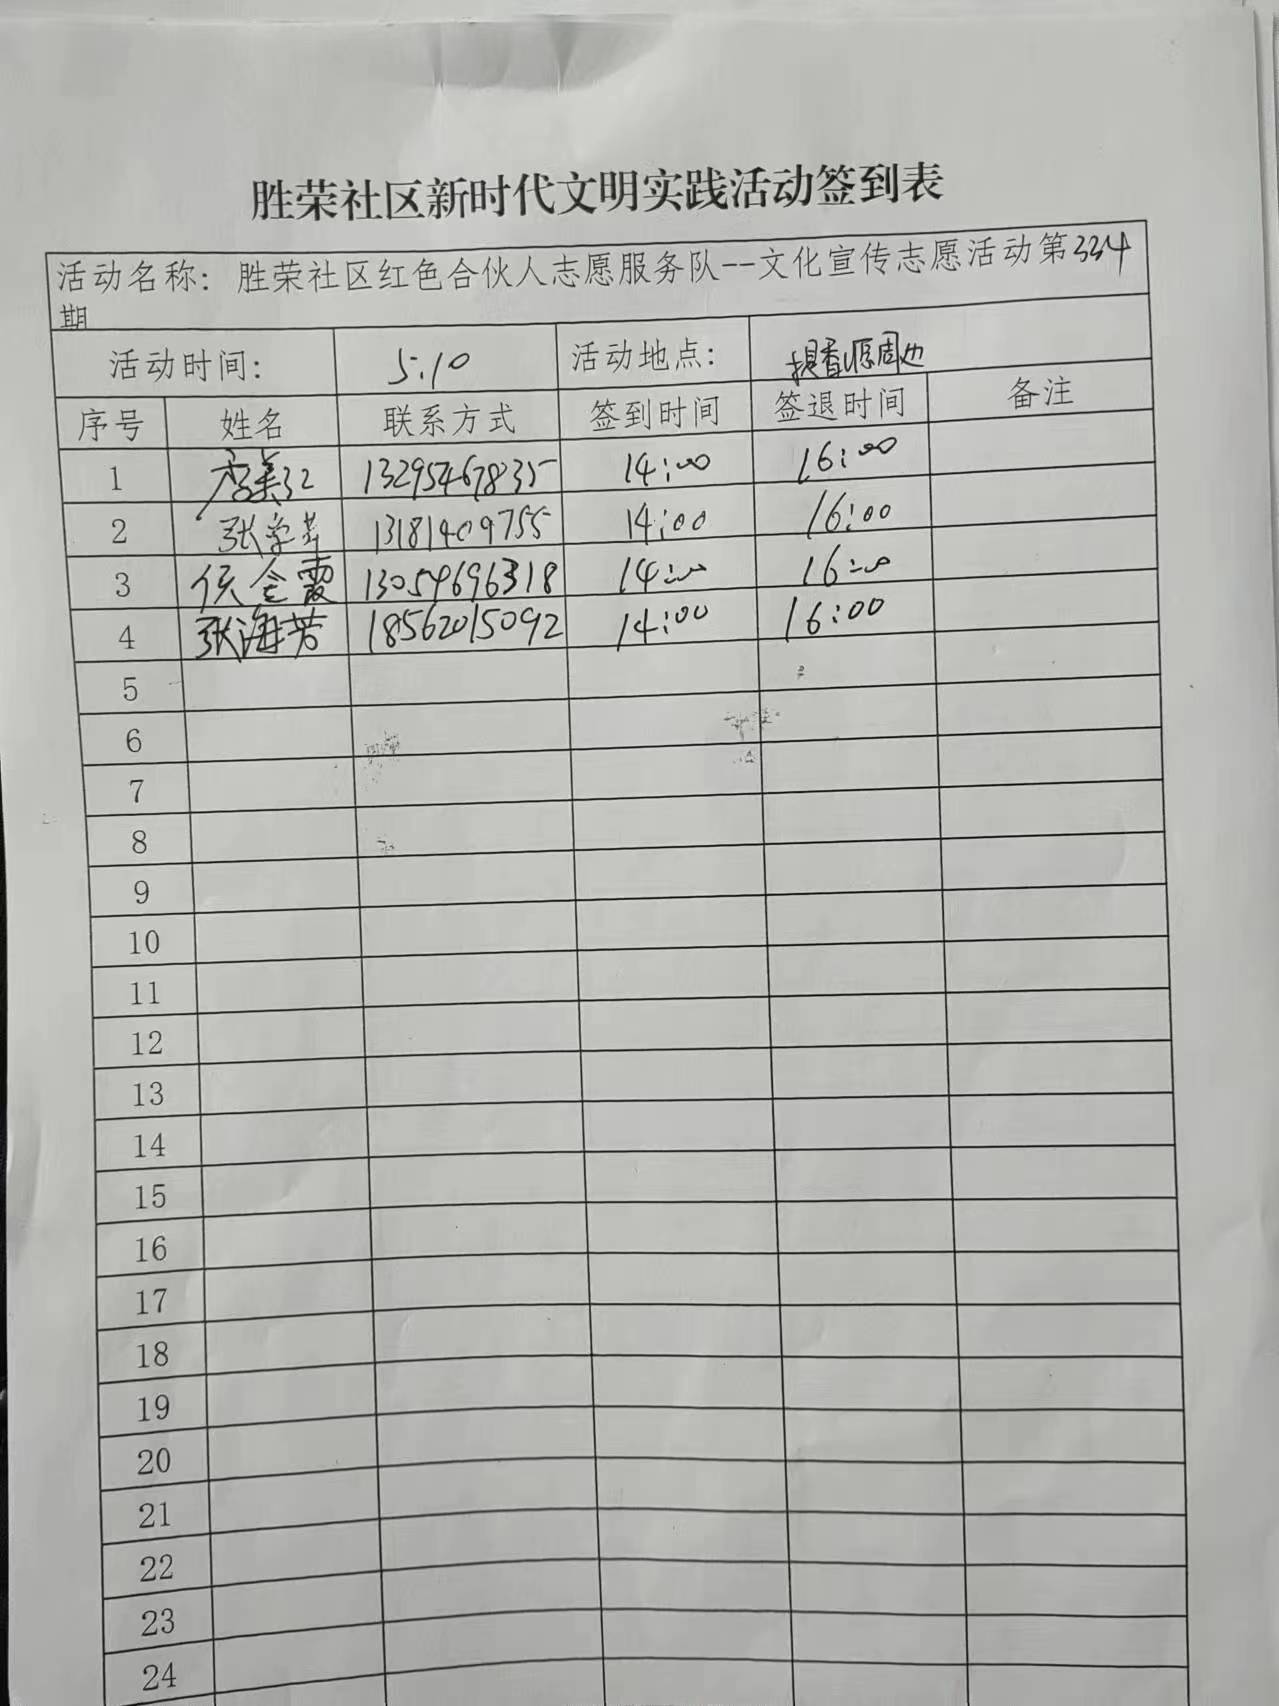 胜荣社区新时代文明实践活动签到表
活动名称: 胜荣社区红色合伙人志愿服务队--文化宣传志愿活动第334
期
活动时间: 5.10 活动地点: 提香源周边
序号 姓名 联系方式 签到时间 签退时间 备注
1 李美江 13295467835 14:00 16:00
2 张学芹 13181409755 14:00 16:00
3 侯全霞 13054696318 14:00 16:00
4 张海芳 18562015092 14:00 16:00
5
6
7
8
9
10
11
12
13
14
15
16
17
18
19
20
21
22
23
24